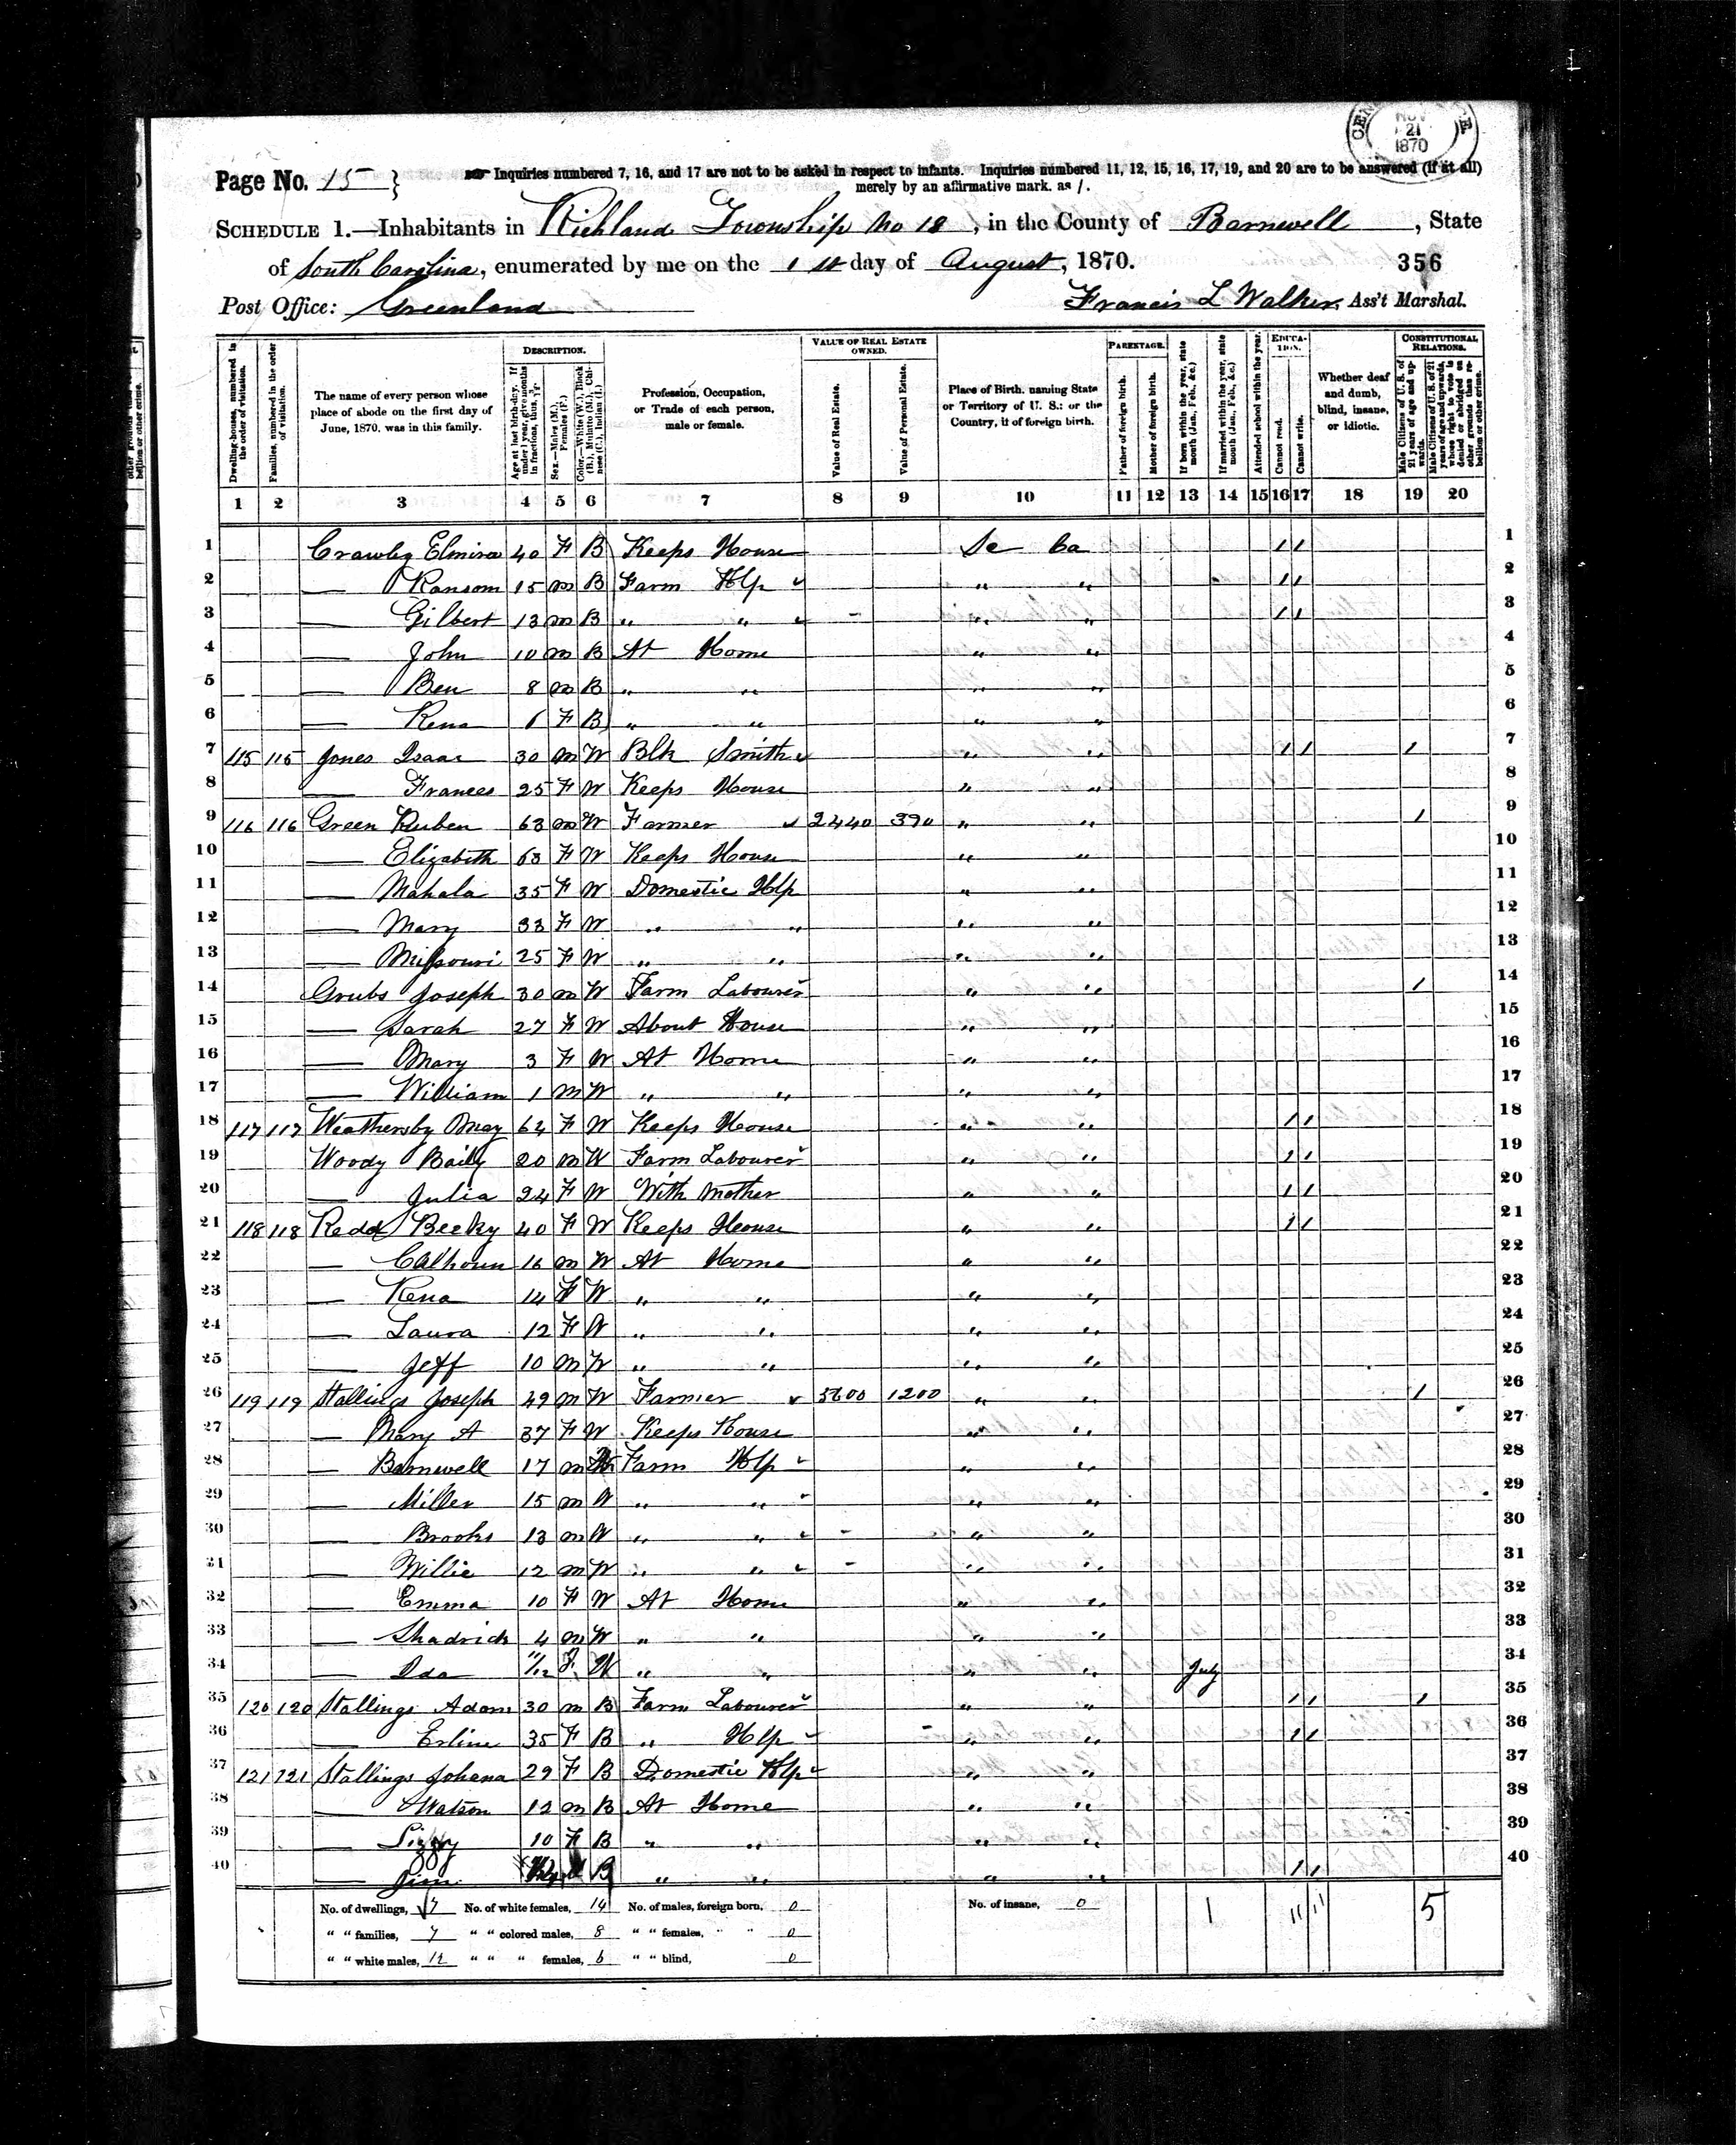 CEN NOV 21 1870 E
Page No. 15 } Inquiries numbered 7, 16, and 17 are not to be asked in respect to infants. Inquiries numbered 11, 12, 15, 16, 17, 19, and 20 are to be answered (if at all)
merely by an affirmative mark, as /.
SCHEDULE 1.—Inhabitants in Richland Township No 18, in the County of Barnwell, State
of South Carolina, enumerated by me on the 1st day of August, 1870. 356
Post Office: Greenland Francis L Walker, Ass't Marshal.
Dwelling-houses, numbered in the order of visitation.
Families, numbered in the order of visitation.
The name of every person whose place of abode on the first day of June, 1870, was in this family.
DESCRIPTION.
Age at last birth-day. If under 1 year, give months in fractions, thus, 3/12.
Sex.—Males (M.), Females (F.)
Color.—White (W.), Black (B.), Mulatto (M.), Chinese (C.), Indian (I.)
Profession, Occupation, or Trade of each person, male or female.
VALUE OF REAL ESTATE OWNED.
Value of Real Estate.
Value of Personal Estate.
Place of Birth, naming State or Territory of U. S.; or the Country, if of foreign birth.
PARENTAGE.
Father of foreign birth.
Mother of foreign birth.
If born within the year, state month (Jan., Feb., &c.)
If married within the year, state month (Jan., Feb., &c.)
Attended school within the year.
EDUCATION.
Cannot read.
Cannot write.
Whether deaf and dumb, blind, insane, or idiotic.
CONSTITUTIONAL RELATIONS.
Male Citizens of U. S. of 21 years of age and upwards.
Male Citizens of U. S. of 21 years of age and upwards, whose right to vote is denied or abridged on other grounds than rebellion or other crime.
1 2 3 4 5 6 7 8 9 10 11 12 13 14 15 16 17 18 19 20
1 Crawley Elmira 40 F B Keeps House So Ca / / 1
2 — Ransom 15 m B Farm Hlp " " / / 2
3 — Gilbert 13 m B " " " " / / 3
4 — John 10 m B At Home " " 4
5 — Ben 8 m B " " " " 5
6 — Rena 6 F B " " " " 6
7 115 115 Jones Isaac 30 m W Blk Smith " " / / / 7
8 — Frances 25 F W Keeps House " " 8
9 116 116 Green Ruben 63 m W Farmer 2440 390 " " / 9
10 — Elizabeth 63 F W Keeps House " " 10
11 — Mahala 35 F W Domestic Hlp " " 11
12 — Mary 33 F W " " " " 12
13 — Missouri 25 F W " " " " 13
14 Grubs Joseph 30 m W Farm Labourer " " / 14
15 — Sarah 27 F W About House " " 15
16 — Mary 3 F W At Home " " 16
17 — William 1 m W " " " " 17
18 117 117 Weathersby Mary 64 F W Keeps House " " / / 18
19 Woody Baily 20 m W Farm Labourer " " / / 19
20 — Julia 24 F W With Mother " " / / 20
21 118 118 Redd Becky 40 F W Keeps House " " / / 21
22 — Calhoun 16 m W At Home " " 22
23 — Rena 14 F W " " " " 23
24 — Laura 12 F W " " " " 24
25 — Jeff 10 m W " " " " 25
26 119 119 Stallings Joseph 49 m W Farmer 5600 1200 " " / 26
27 — Mary A 37 F W Keeps House " " 27
28 — Barnwell 17 m W Farm Hlp " " 28
29 — Miller 15 m W " " " " 29
30 — Brooks 13 m W " " " " 30
31 — Willie 12 m W " " " " 31
32 — Emma 10 F W At Home " " 32
33 — Shadrick 4 m W " " " " 33
34 — Ida 11/12 F W " " " " July 34
35 120 120 Stallings Adam 30 m B Farm Labourer " " / / / 35
36 — Erline 35 F B " Hlp " " / / 36
37 121 121 Stallings Johana 29 F B Domestic Hlp " " 37
38 — Watson 12 m B At Home " " 38
39 — Lizzy 10 F B " " " " 39
40 — Jim B " " " " / / 40
No. of dwellings, 7 No. of white females, 14 No. of males, foreign born, 0 No. of insane, 0 1 11 11 5
" " families, 7 " " colored males, 8 " " females, " " 0
" " white males, 12 " " " females, 6 " " blind, 0